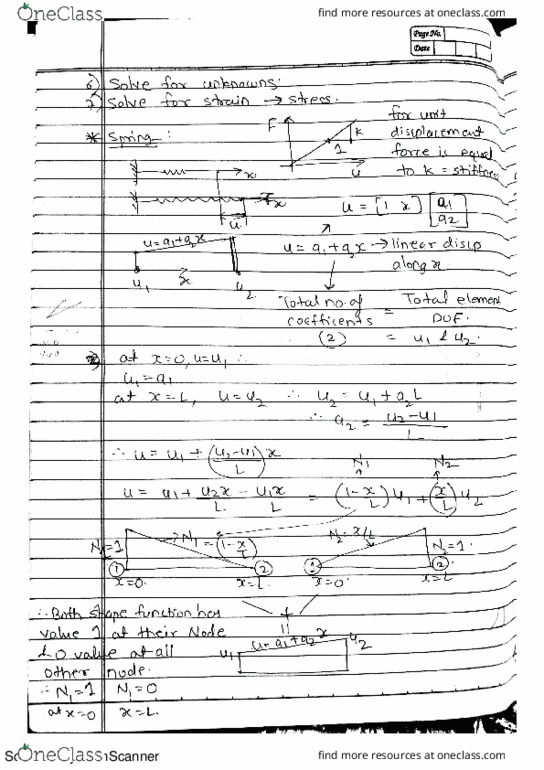 OneClass
find more resources at oneclass.com
Page No.
Date
6) Solve for unknowns.
7) Solve for strain → stress.
* Spring :
F
k
1
u
for unit
displacement
force is equal
to k = stiffness
x
x
u
u = [1 x] [a1
a2]
u = a1 + a2x
u1
x
u2
u = a1 + a2x → linear disp
along x.
Total no. of
coefficents
(2)
= Total element
DOF.
= u1 & u2.
at x=0, u=u1 ∴
u1 = a1
at x=L, u=u2 ∴ u2 = u1 + a2L
∴ a2 = u2-u1
L
∴ u = u1 + (u2-u1/L) x
N1 N2
u = u1 + u2x/L - u1x/L = (1-x/L) u1 + (x/L) u2
N1=1
N1 = (1-x/L)
N2 = x/L
N2=1.
1
2
1
2
x=0.
x=L.
x=0
x=L
∴ Both shape function has
value 1 at their Node
& 0 value at all
other node.
+
u = a1 + a2x
u1
u2
∴ N1=1 N1=0
at x=0 x=L.
OneClass
Scanner
find more resources at oneclass.com